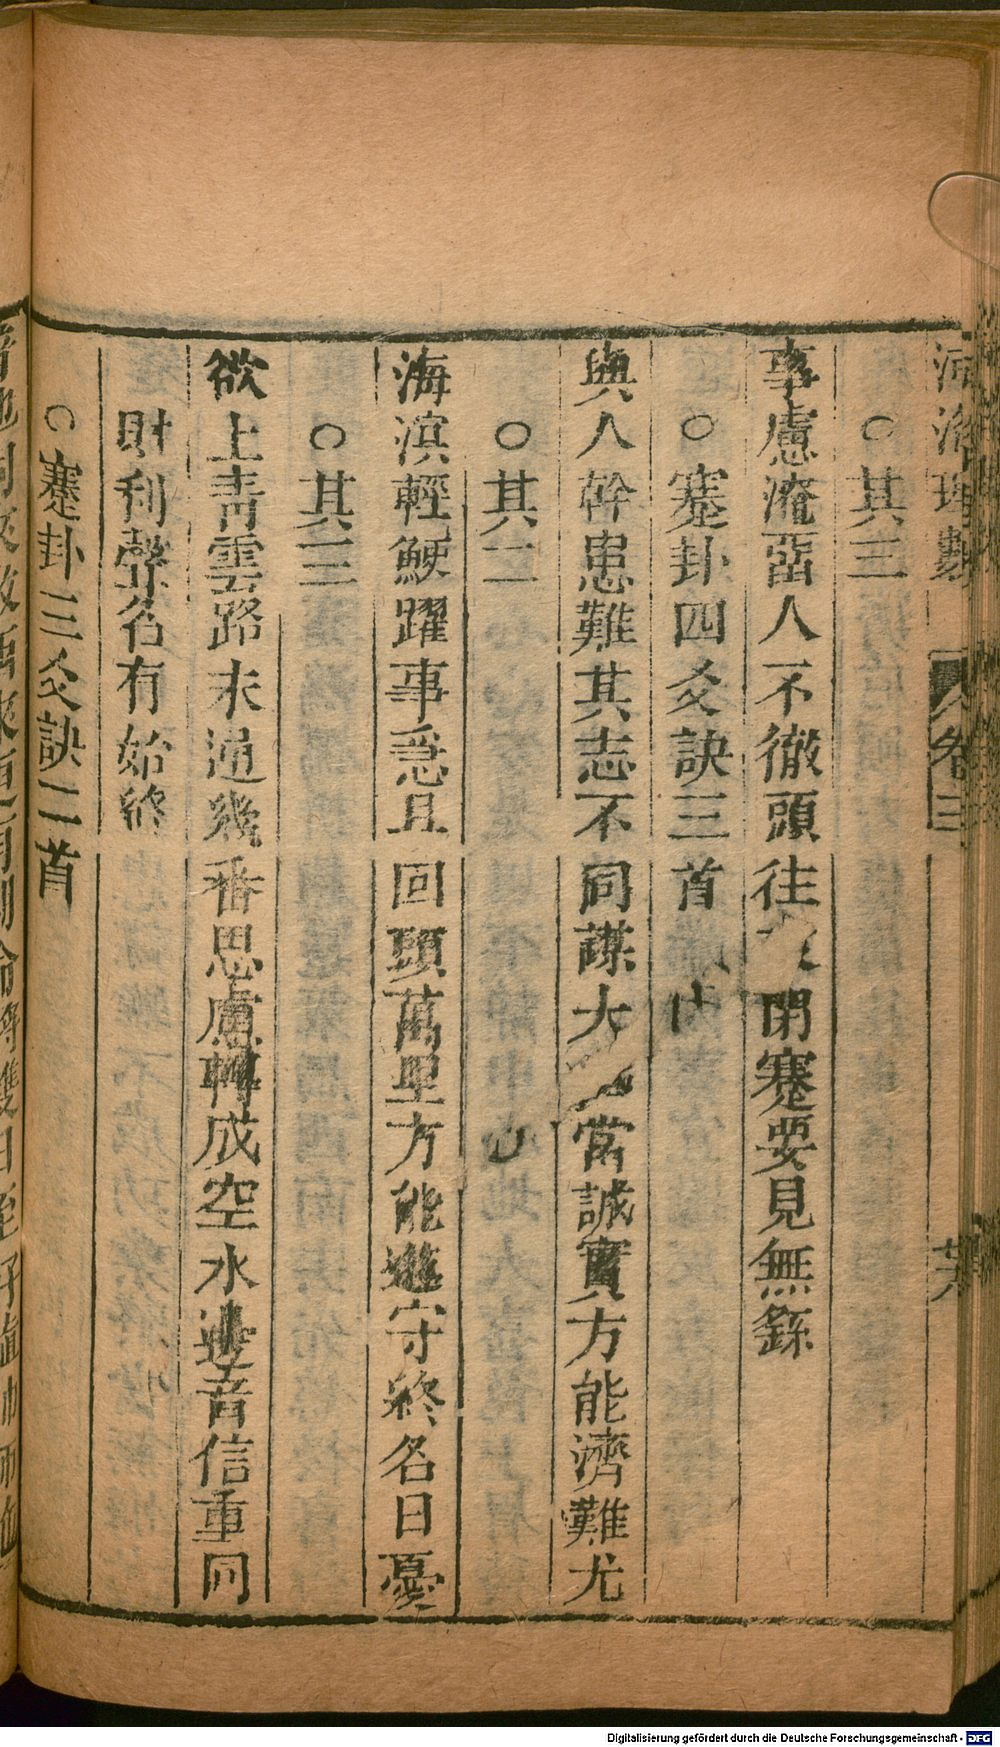 河洛理數 卷三 廿六
○其三
事慮淹畱人不徹頭往 閉蹇要見無繇
○蹇卦四爻訣三首
與人幹患難其志不同謀大 當誠實方能濟難尤
○其二
海濱輕鯁躍事急且回頭萬里方能進守終名日憂
○其三
欲上靑雲路未通幾番思慮轉成空水邊音信重同
財利聲名有始終
○蹇卦三爻訣二首
Digitalisierung gefördert durch die Deutsche Forschungsgemeinschaft - DFG